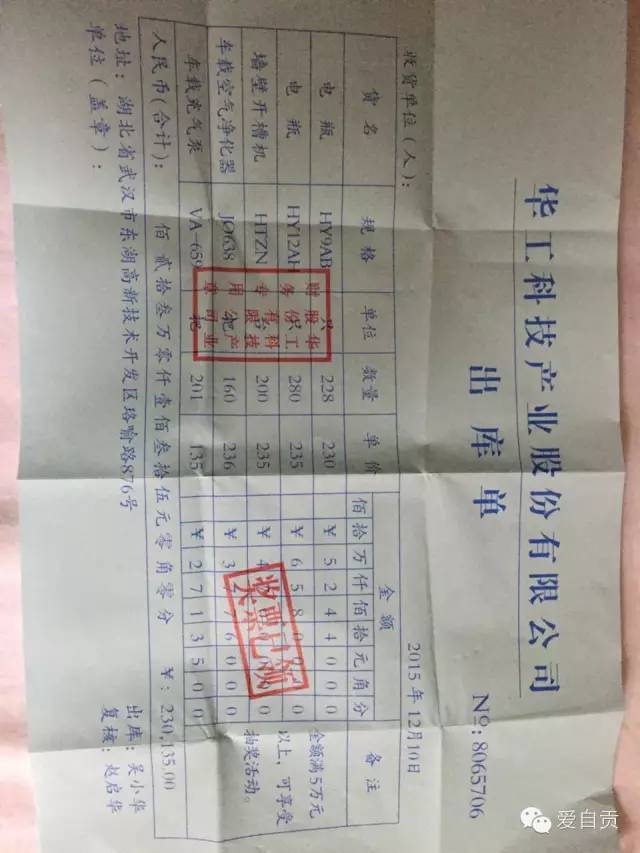 华工科技产业股份有限公司
出库单
№:8065706
收货单位(人):
2015年12月10日
货名 规格 单位 数量 单价 金额 备注
佰 拾 万 仟 佰 拾 元 角 分
电瓶 HY9AB 228 230 ¥ 5 2 4 4 0 0 0
电瓶 HY12AH 280 235 ¥ 6 5 8 0 0
墙壁开槽机 HTZN 200 235 ¥ 4
车载空气净化器 JO638 160 236 ¥ 3 6 0 0 0
车载充气泵 VA-659 201 135 ¥ 2 7 1 3 5 0 0
金额满5万元
以上,可享受
抽奖活动。
华工科技产业
股份有限公司
财务专用章
人民币(合计): 佰贰拾叁万零仟壹佰叁拾伍元零角零分 ¥:230,135.00
地址:湖北省武汉市东湖高新技术开发区珞喻路876号
出库:吴小华
单位(盖章):
复核:赵启华
爱自贡